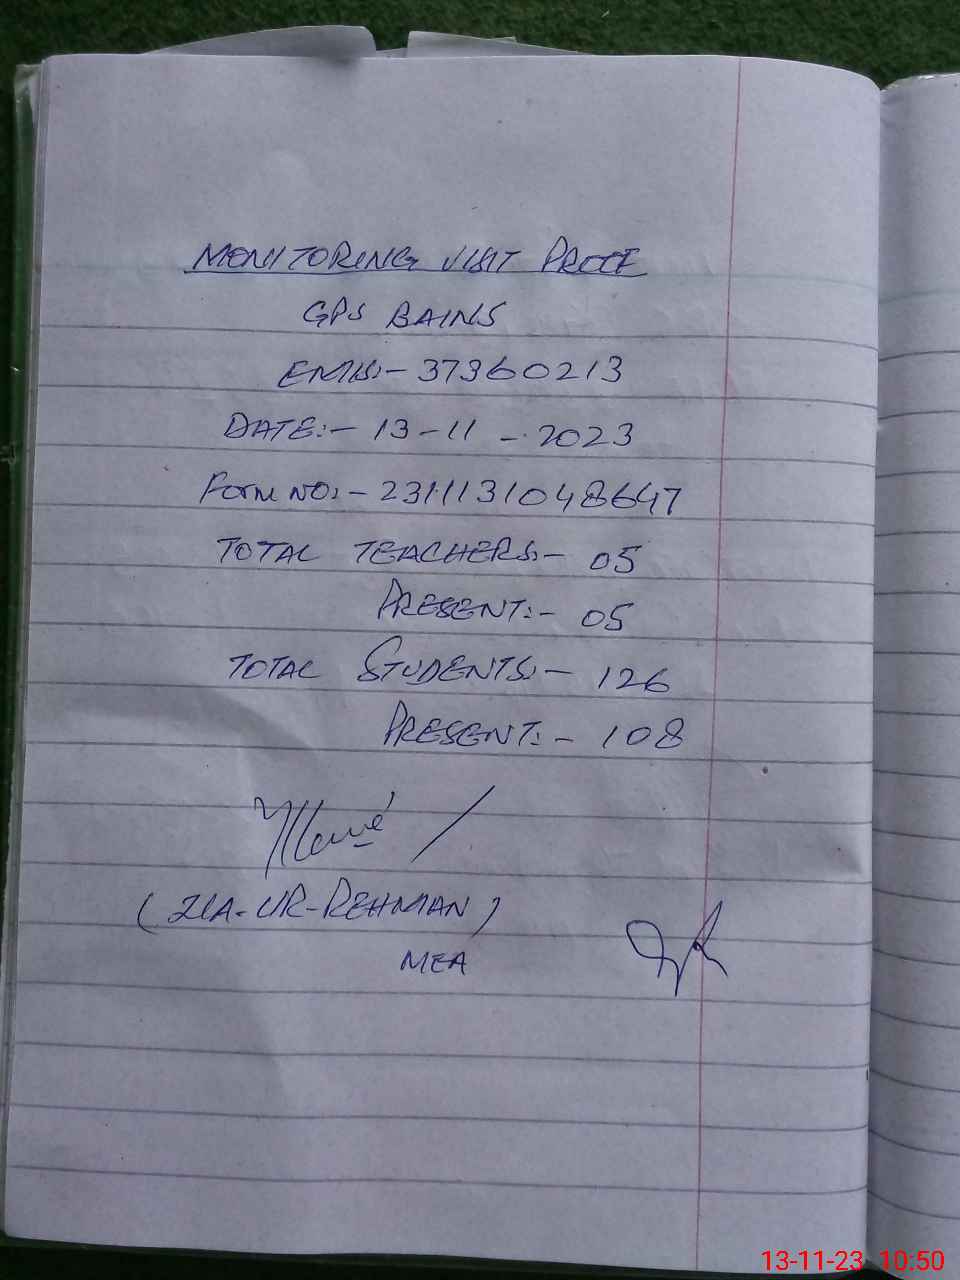 MONITORING VISIT PROOF
GPS BAINS
EMIS:- 37360213
DATE:- 13-11-2023
FORM NO:- 2311131048647
TOTAL TEACHERS:- 05
PRESENT:- 05
TOTAL STUDENTS:- 126
PRESENT:- 108
(ZIA-UR-REHMAN)
MEA
13-11-23 10:50